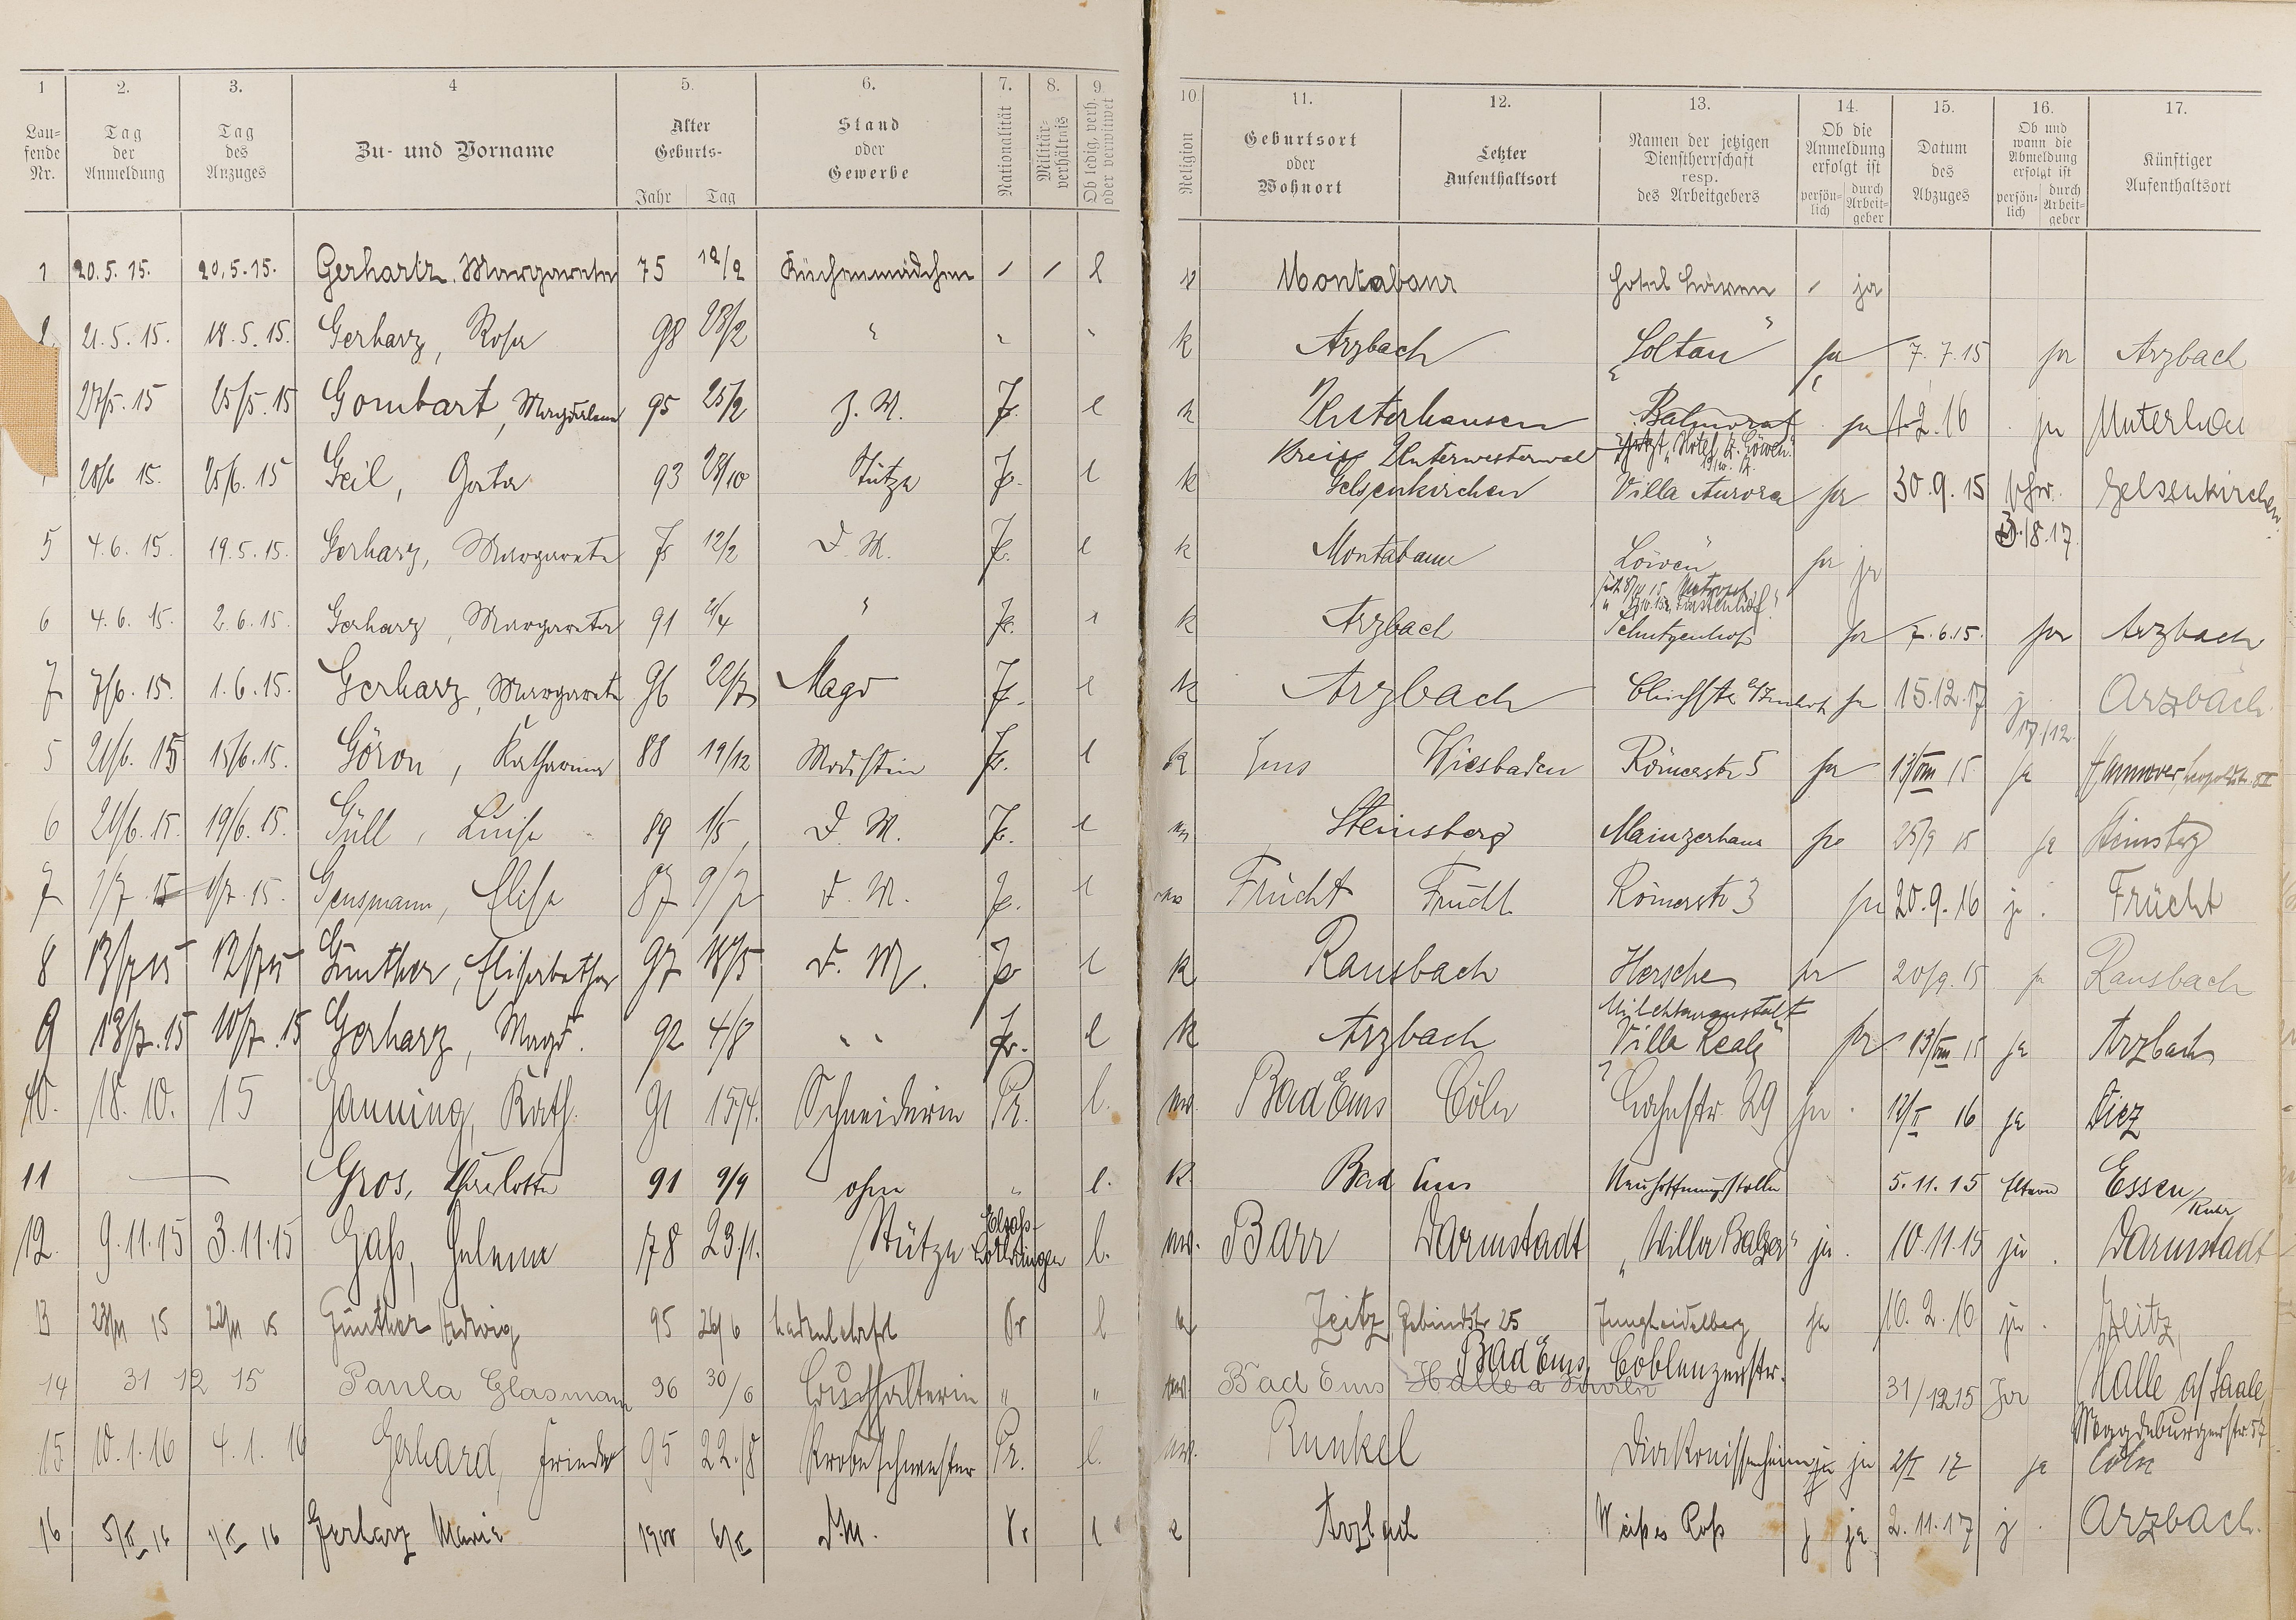 1 2. 3. 4 5. 6. 7. 8. 9. 10. 11. 12. 13. 14. 15. 16. 17.
Laufende Nr. Tag der Anmeldung Tag des Anzuges Zu- und Vorname Alter Geburts- Jahr Tag Stand oder Gewerbe Nationalität Militärverhältnis Ob ledig, verh. oder verwitwet Religion Geburtsort oder Wohnort Letzter Aufenthaltsort Namen der jetzigen Dienstherrschaft resp. des Arbeitgebers Ob die Anmeldung erfolgt ist persönlich durch Arbeitgeber Datum des Abzuges Ob und wann die Abmeldung erfolgt ist persönlich durch Arbeitgeber Künftiger Aufenthaltsort
1 20.5.15. 20.5.15. Gerhartz, Margareta 75 12/2 Küchenmädchen / / l Montabaur Hotel Löwen / ja
21.5.15. 18.5.15. Gerharz, Rosa 98 23/2 " " " k Arzbach "Soltau" ja 7.7.15 ja Arzbach
27/5.15 25/5.15 Gombart, Magdalena 95 25/2 Z. M. Pr. l k Unterhausen Balmoral ja 1.2.16 ja Unterhau
Kreis Unterwesterwal jetzt "Hotel z. Löwen"
28/6 15. 25/6.15 Geil, Greta 93 28/10 Stütze Pr. l k Gelsenkirchen Villa Aurora ja 30.9.15 Gelsenkirchen
5 4.6.15. 19.5.15. Gerharz, Margareta 75 12/2 D. M. Pr. l k Montabaur "Löwen" ja ja 3./8.17.
Fürstenhof"
6 4.6.15. 2.6.15. Gerharz, Margareta 91 2/4 " Pr. l k Arzbach Schützenhof ja 7.6.15. ja Arzbach
7 7/6.15. 1.6.15. Gerharz, Margareta 96 22/7 Magd Pr. l k Arzbach ja 15.12.17 j Arzbach
17./12.
5 21/6.15 15/6.15. Göron, Katharina 88 19/12 Modistin Pr. l k Ems Wiesbaden Römerstr 5 ja 13/VIII 15 ja Hannover,
6 21/6.15. 19/6.15. Güll, Luise 89 1/5 D. M. Pr. l Steinsberg Mainzerhaus ja 25/9 15 ja Steinsberg
7 1/7.15 1/7.15. Gensmann, Elise 87 9/7 D. M. Pr. l Frücht Frücht Römerstr 3 ja 20.9.16 j. Frücht
8 13/7 15 12/7 15 Günther, Elisabetha 97 18/5 D. M. Pr l k Ransbach Hersche ja 20/9.15 ja Ransbach
Milchkuranstalt
9 13/7.15 10/7.15 Gerharz, Magd. 92 4/8 " " Pr. l k Arzbach "Villa Reale" ja 13/VIII 15 ja Arzbach
10. 18.10. 15 Janning, Kath. 91 15/4. Schneiderin Pr. l. ev. Bad Ems Cöln Lahnstr. 29 ja. 12/II 16 ja Diez
11 — Gros, Charlotte 91 9/9 ohne " l. k Bad Ems Neuhoffnungstollen 5.11.15 Eltern Essen/Ruhr
12. 9.11.15 3.11.15 Gaß, Helene 78 23./1. Stütze Elsaß-Lothringen l. ev. Barr Darmstadt "Villa Balzer" ja. 10.11.15 ja. Darmstadt
13 23/11 15 22/11 15 Günther Hedwig 95 26/6 Pr l Zeitz, Gebindstr 25 Jungheidelberg ja 10.2.16 ja. Zeitz
14 31 12 15 Paula Glasmann 96 30/6 Buchhalterin " " ev. Bad Ems Halle a Bad Ems, Coblenzerstr. 31/12 15 Ja Halle a/Saale,
Magdeburgerstr. 57
15. 10.1.16 4.1.16 Gerhard, Frieda 95 22./8 Probeschwester Pr. l. ev. Runkel Diakonissenheim ja ja 2/I 17 ja Cöln
16 5/II 16 1/II 16 Gerharz Marie 1900 6/II D.M. Pr l Arzbach Weißes Roß j ja 2.11.17 j. Arzbach.